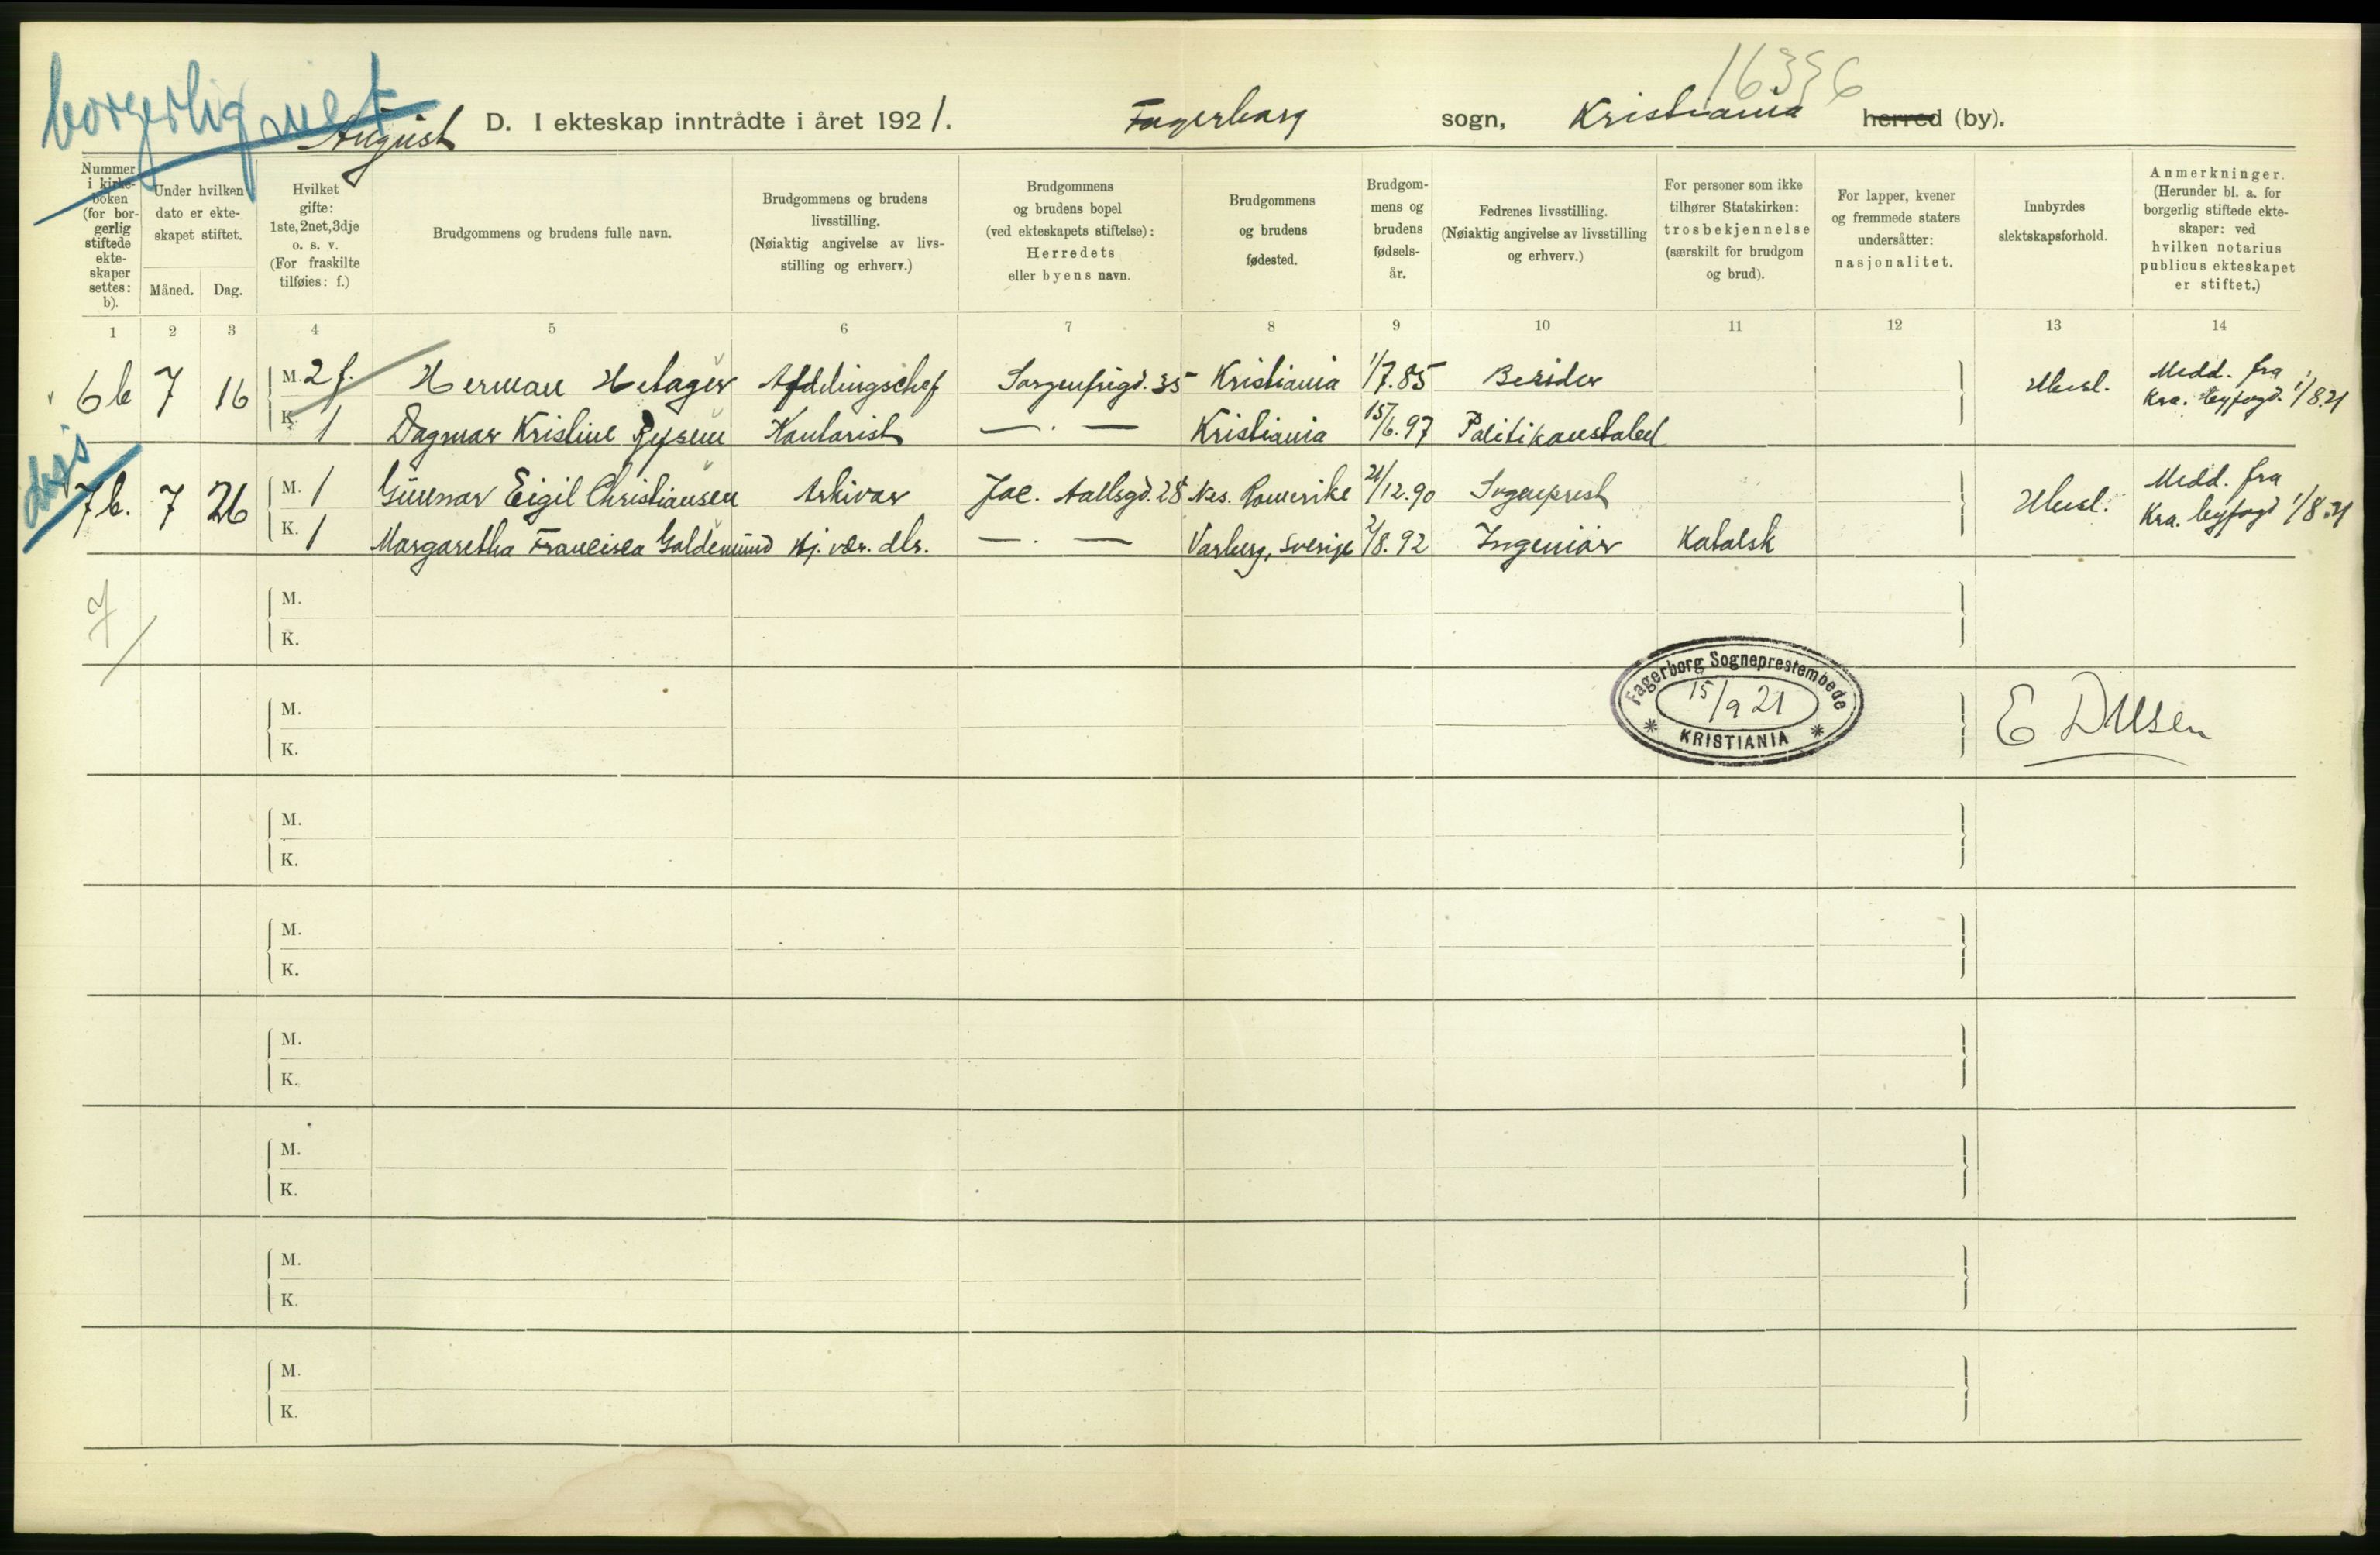 borgerlig viet
16396
August D. I ekteskap inntrådte i året 1921. Fagerborg sogn, Kristiania herred (by).
Nummer i kirke-boken (for bor-gerlig stiftede ekte-skaper settes: b).
Under hvilken dato er ekte-skapet stiftet.
Måned. Dag.
Hvilket gifte: 1ste, 2net, 3dje o. s. v. (For fraskilte tilføies: f.)
Brudgommens og brudens fulle navn.
Brudgommens og brudens livsstilling. (Nøiaktig angivelse av livs-stilling og erhverv.)
Brudgommens og brudens bopel (ved ekteskapets stiftelse): Herredets eller byens navn.
Brudgommens og brudens fødested.
Brudgom-mens og brudens fødsels-år.
Fedrenes livsstilling. (Nøiaktig angivelse av livsstilling og erhverv.)
For personer som ikke tilhører Statskirken: trosbekjennelse (særskilt for brudgom og brud).
For lapper, kvener og fremmede staters undersåtter: nasjonalitet.
Innbyrdes slektskapsforhold.
Anmerkninger. (Herunder bl. a. for borgerlig stiftede ekte-skaper: ved hvilken notarius publicus ekteskapet er stiftet.)
1 2 3 4 5 6 7 8 9 10 11 12 13 14
6b 7 16 M. 2 f. Herman Hetager Afdelingschef Sorgenfrigd. 35 Kristiania 1/7.85 Besider Ubesl. Medd. fra
Kra. byfogd. 1/8.21
K. 1 Dagmar Kristine Kontorist — . — Kristiania 15/6.97 Politikonstabel
7b. 7 26 M. 1 Gunnar Eigil Christiansen Arkivar Jac. Aallsgd. 28 Nes. Romerike 21/12.90 Sogneprest Ubesl. Medd. fra
Kra. byfogd 1/8.21
K. 1 Margaretha Francisca Goldemund Hj. vær. dtr. — . — Varberg, Sverige 2/8.92 Ingeniør Katolsk
7/
M.
K.
Fagerborg Sogneprestembede
15/9 21
KRISTIANIA
M.
K.
M.
K.
M.
K.
M.
K.
M.
K.
M.
K.
M.
K.